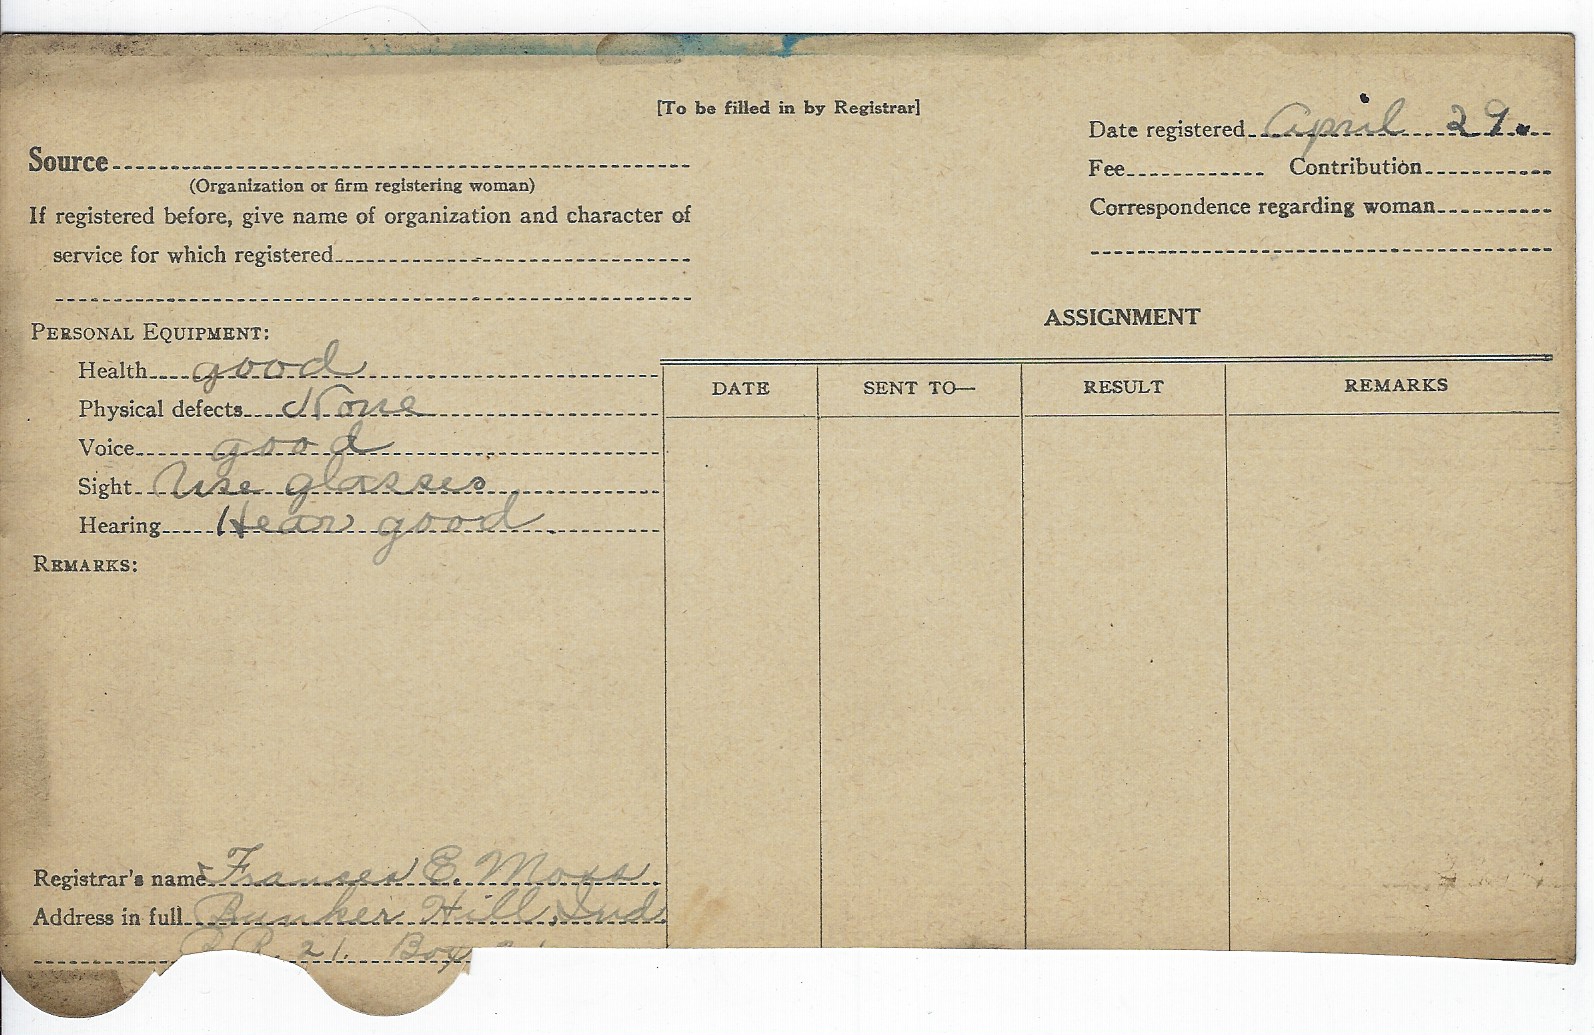 [To be filled in by Registrar]
Date registered April 29.
Source
Fee Contribution
(Organization or firm registering woman)
Correspondence regarding woman
If registered before, give name of organization and character of
service for which registered
ASSIGNMENT
PERSONAL EQUIPMENT:
Health good
Physical defects None
Voice good
Sight Use glasses
Hearing Hear good
REMARKS:
DATE SENT TO— RESULT REMARKS
Registrar's name Frances E. Moss
Address in full Bunker Hill, Ind.
R. 21. Box